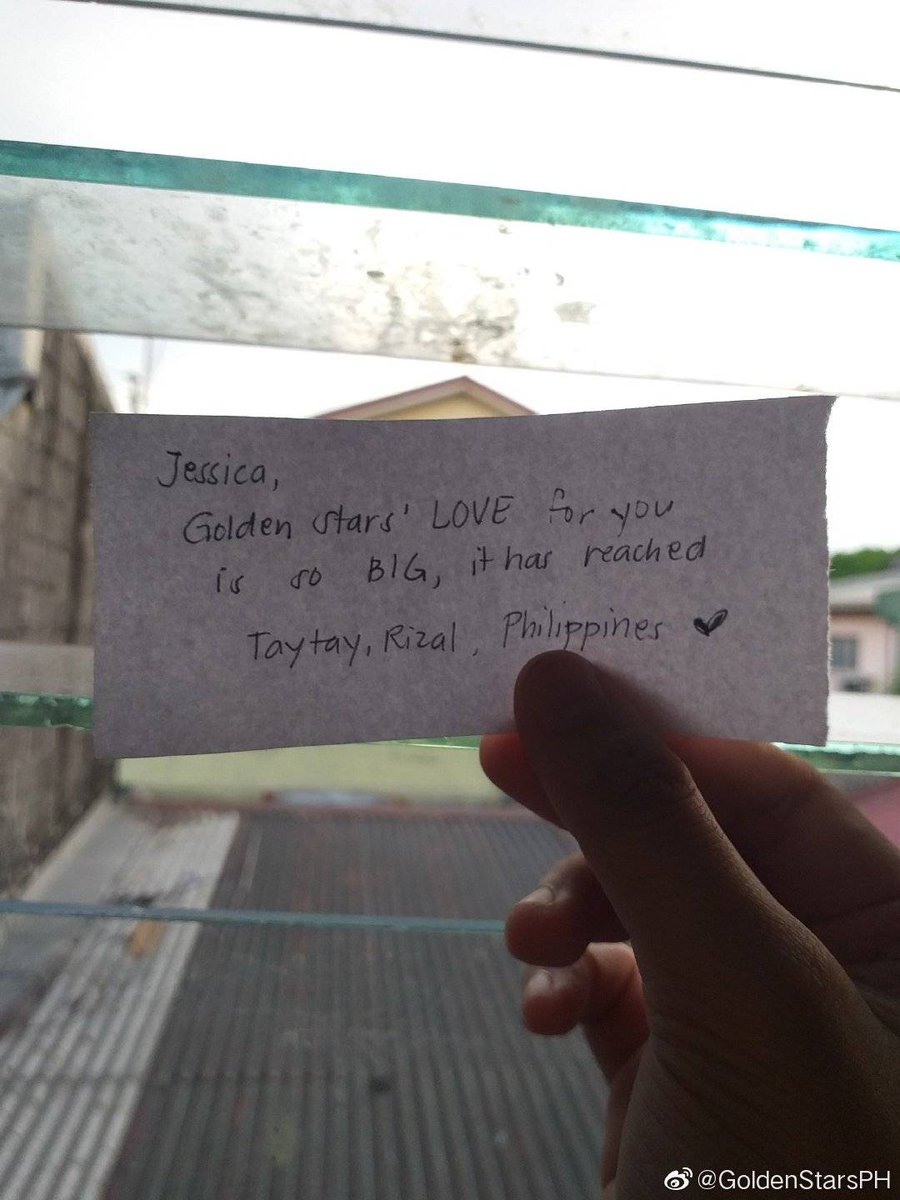 Jessica,
Golden stars' LOVE for you
is so BIG, it has reached
Taytay, Rizal, Philippines ❤
@GoldenStarsPH